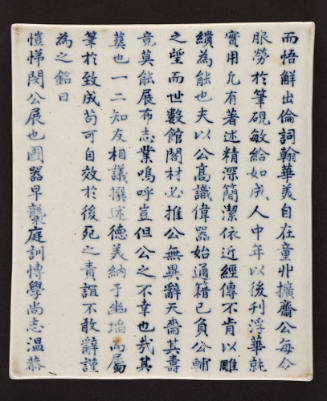 而悟鮮出倫詞翰華美自在童丱擴齋公每令
服勞於筆硯敏給如成人中年以後刊浮華就
實用允有著述精深簡潔依近經傳不肯以雕
繢為能也夫以公高識偉器始通籍已負公輔
之望而世數館閣材必推公無異辭天嗇其壽
竟莫能展布志業嗚呼豈但公之不幸也哉其
葬也一二知友相議撰述德美納于幽而屬
筆於致成苟可自效於後死之責誼不敢辭謹
為之銘曰
愷悌閔公展也國器早襲庭訓博學尚志溫恭